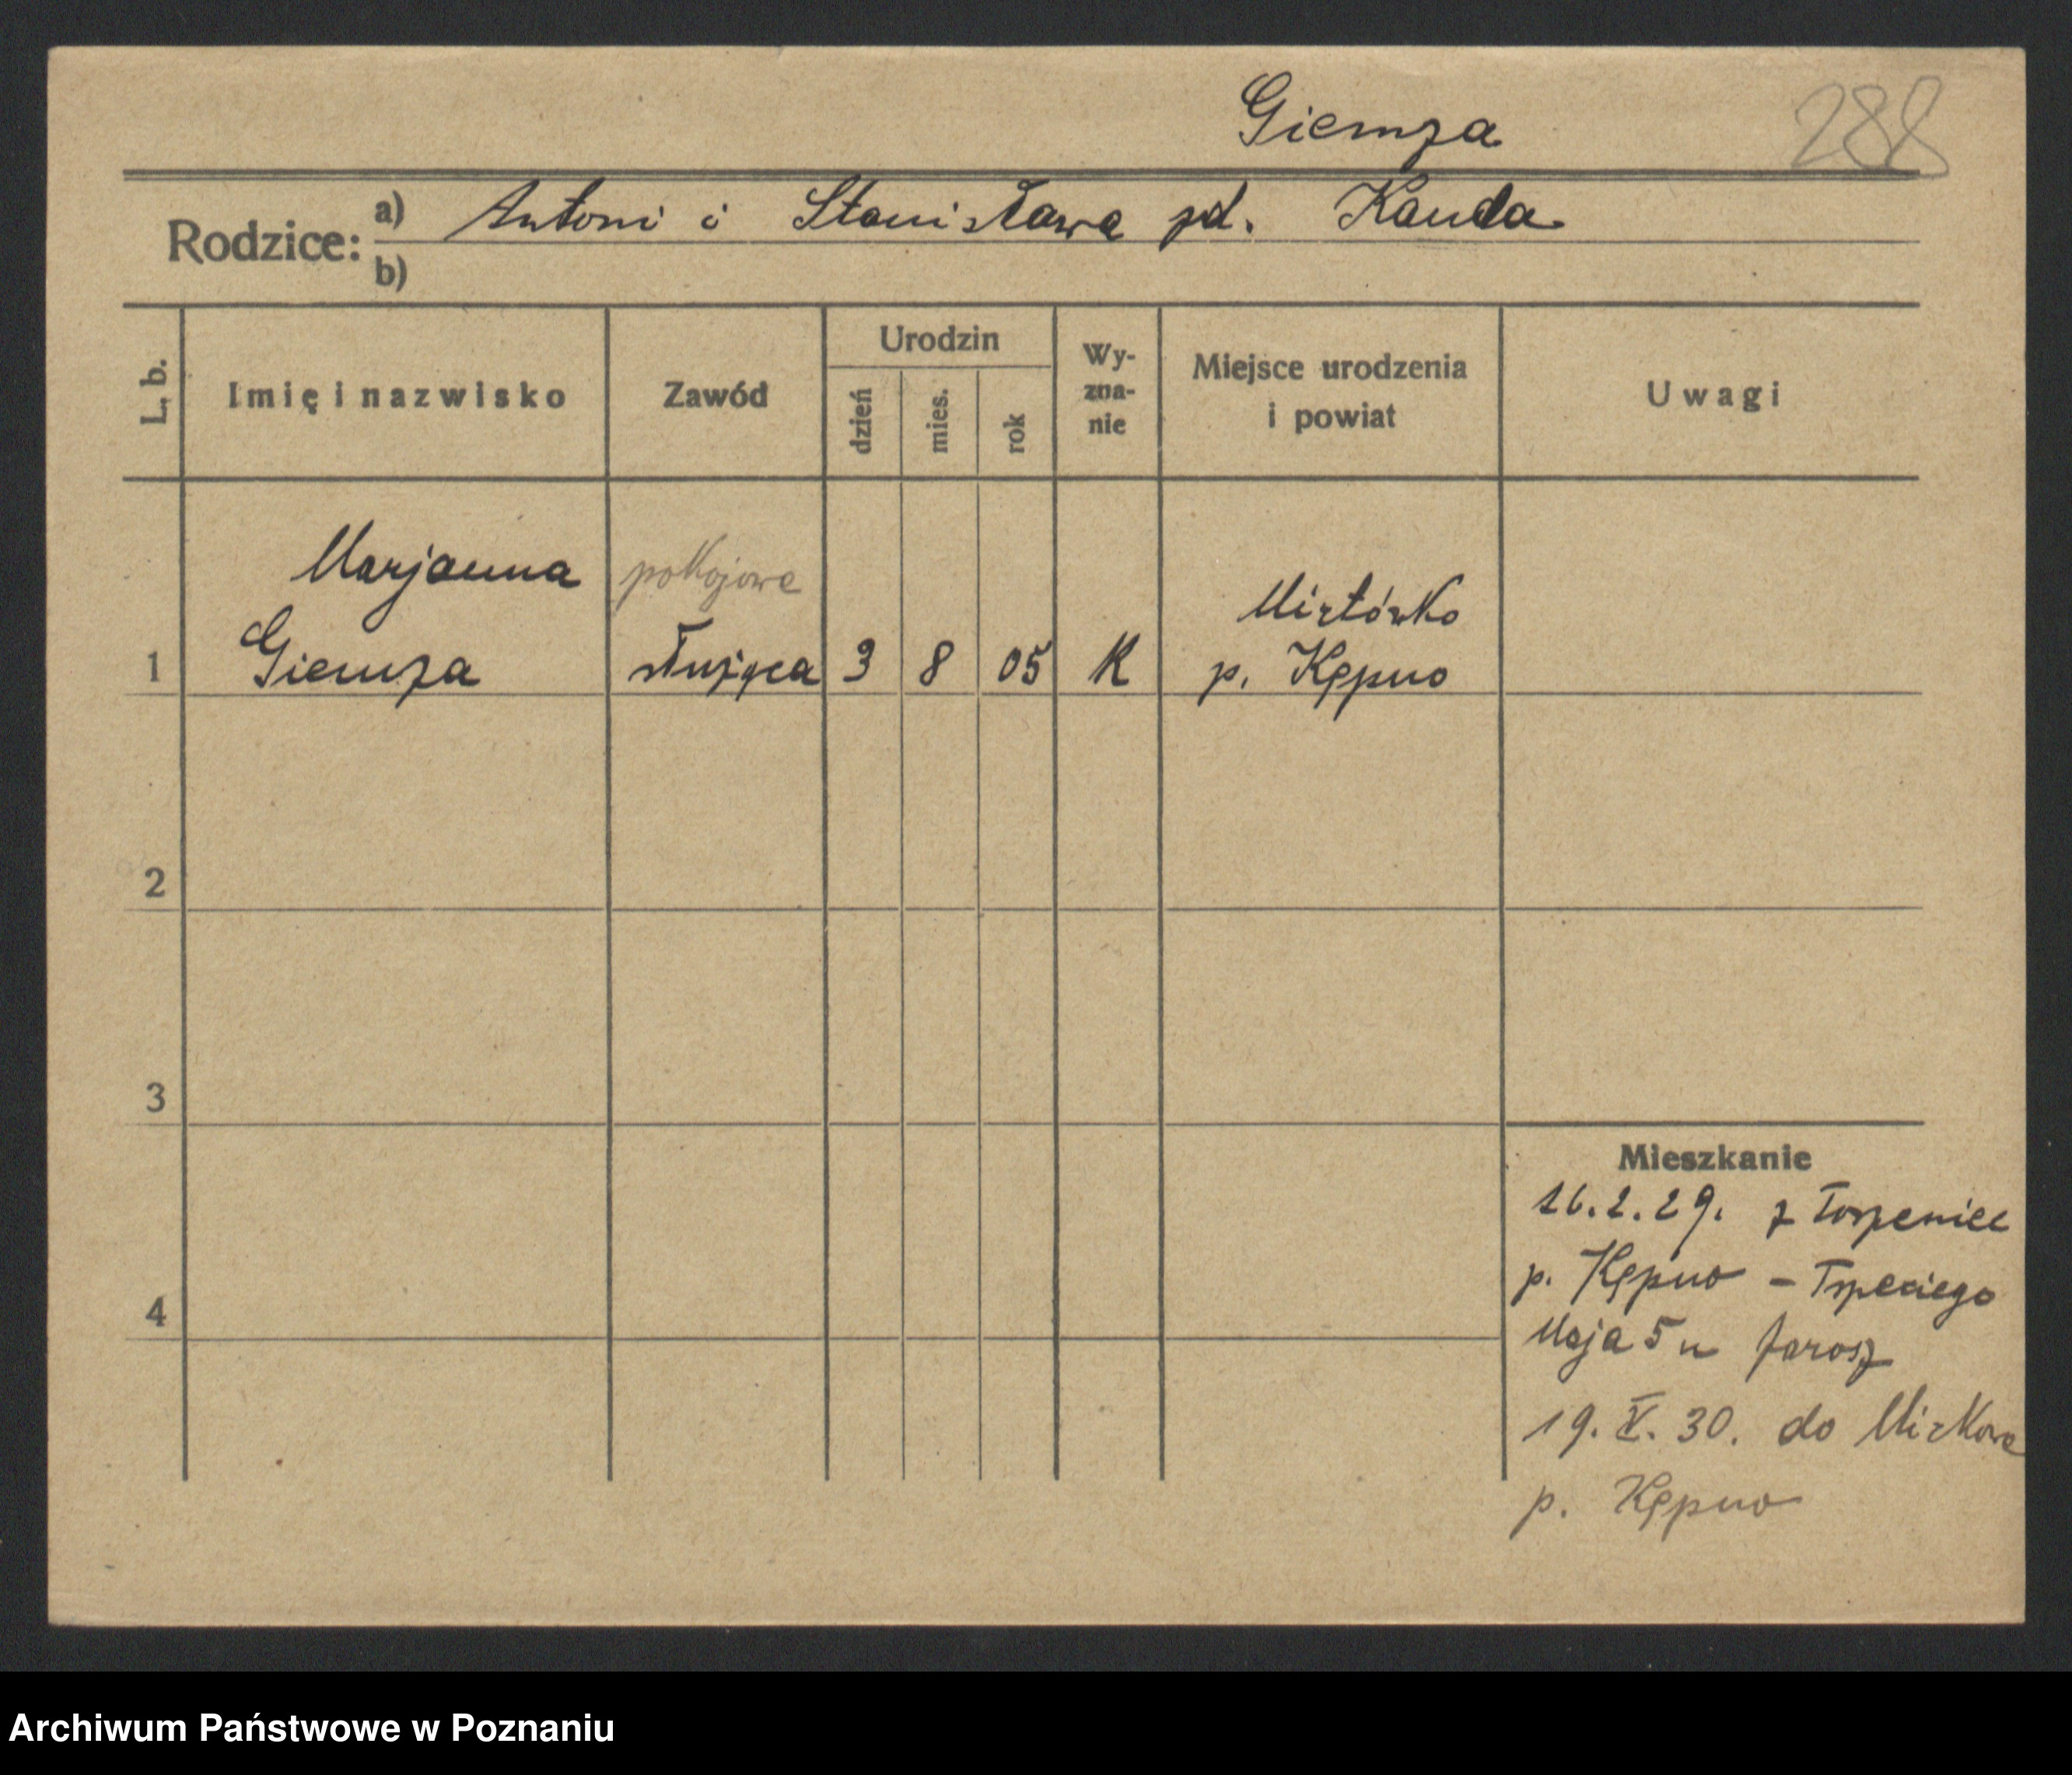 Giemza
288
Rodzice: a) Antoni i Stanisława zd. Kanda
b)
L. b. Imię i nazwisko Zawód Urodzin dzień mies. rok Wyznanie Miejsce urodzenia i powiat Uwagi
Marjanna pokojowa
1 Giemza służąca 3 8 05 K p. Kępno
2
3
4
Mieszkanie
16.2.29. z Torzeniec
p. Kępno - Trzeciego
Maja 5 u Jarosz
19. X. 30. do Mirkowa
p. Kępno
Archiwum Państwowe w Poznaniu